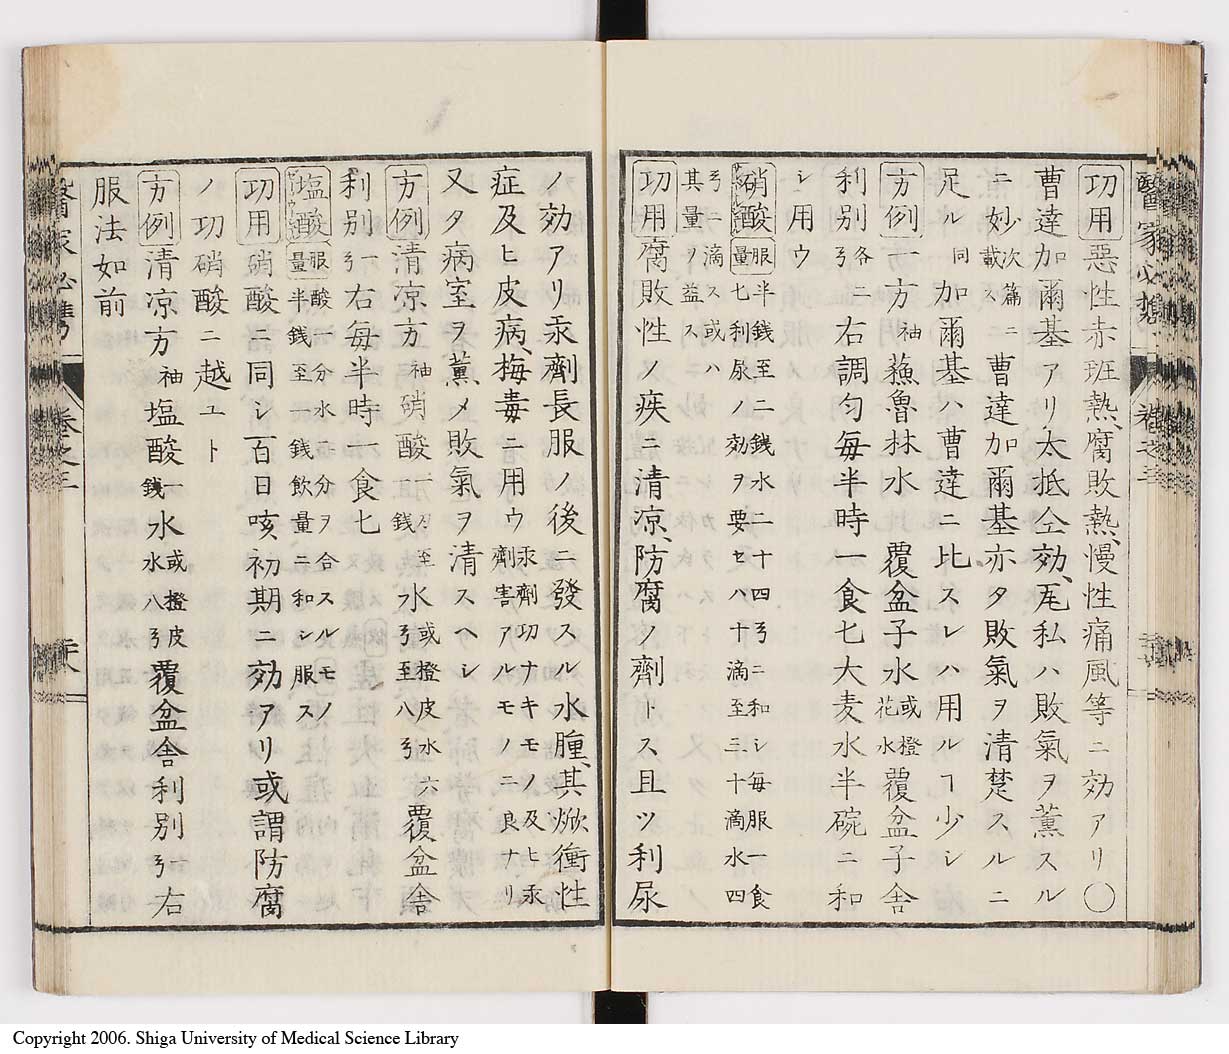 功用惡性赤斑熱、腐敗熱、慢性痛風等ニ効アリ〇
曹達加爾基アリ大抵仝効、尤私ハ敗氣ヲ薫スル
ニ妙次篇ニ載ス曹達加爾基亦タ敗氣ヲ清楚スルニ
足ル同加爾基ハ曹達ニ比スレハ用ルヿ少シ
方例一方袖蘓魯林水 覆盆子水或橙花水覆盆子舎
利別各二ゟ右調匀毎半時一食匕大麦水半碗ニ和
シ用ウ
硝酸服量半銭至二銭水二十四ゟニ和シ毎服一食匕利尿ノ効ヲ要セハ十滴至三十滴水四
ゟニ滴ス或ハ其量ヲ益ス
功用腐敗性ノ疾ニ清涼、防腐ノ劑トス且ツ利尿
ノ効アリ汞劑長服ノ後ニ發スル水腫、其焮衝性
症及ヒ皮病、梅毒ニ用ウ汞劑功ナキモノ及ヒ汞劑害アルモノニ良ナリ
又タ病室ヲ薫メ敗氣ヲ清スヘシ
方例清涼方袖硝酸一銭水或橙皮水六ゟ至八ゟ覆盆舎
利別一ゟ右毎半時一食匕
塩酸服量酸一分水一分ヲ合スルモノ半銭至一銭飲量ニ和シ服ス
功用硝酸ニ同シ百日咳初期ニ効アリ或謂防腐
ノ功硝酸ニ越ユト
方例清凉方袖塩酸一銭水或橙皮水八ゟ覆盆舎利別一ゟ右
服法如前
醫家必携
卷之三